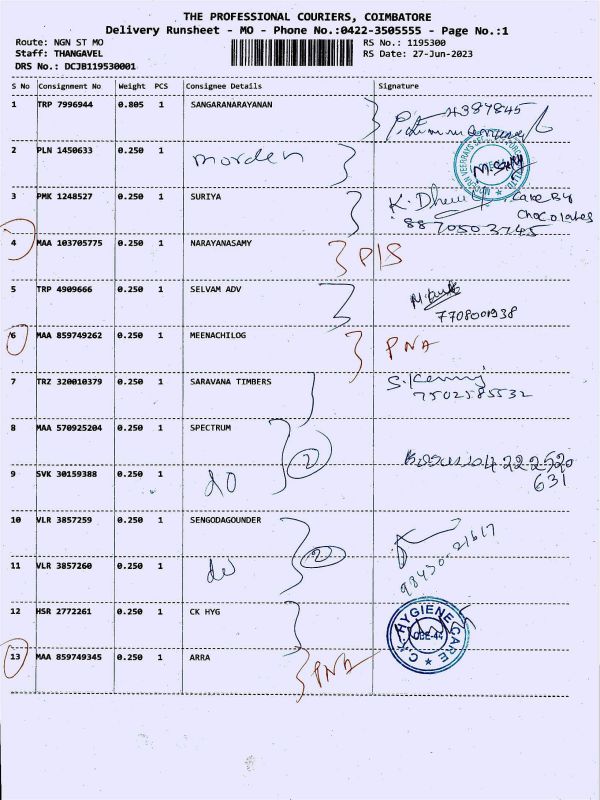 THE PROFESSIONAL COURIERS, COIMBATORE
Delivery Runsheet - MO - Phone No.:0422-3505555 - Page No.:1
Route: NGN ST MO RS No.: 1195300
Staff: THANGAVEL RS Date: 27-Jun-2023
DRS No.: DCJB119530001
S No Consignment No Weight PCS Consignee Details Signature
1 TRP 7996944 0.805 1 SANGARANARAYANAN
4387845
2 PLN 1450633 0.250 1 morden
3 PMK 1248527 0.250 1 SURIYA K. Care By
Chocolates
8870503745
4 MAA 103705775 0.250 1 NARAYANASAMY P/S
5 TRP 4909666 0.250 1 SELVAM ADV
7708001938
6 MAA 859749262 0.250 1 MEENACHILOG PNA
7 TRZ 320010379 0.250 1 SARAVANA TIMBERS S.
7502585532
8 MAA 570925204 0.250 1 SPECTRUM 2
04222520
631
9 SVK 30159388 0.250 1 do
10 VLR 3857259 0.250 1 SENGODAGOUNDER 2
98430-21617
11 VLR 3857260 0.250 1 do
12 HSR 2772261 0.250 1 CK HYG
C.K. HYGIENE CARE
CBE-44
13 MAA 859749345 0.250 1 ARRA PNA